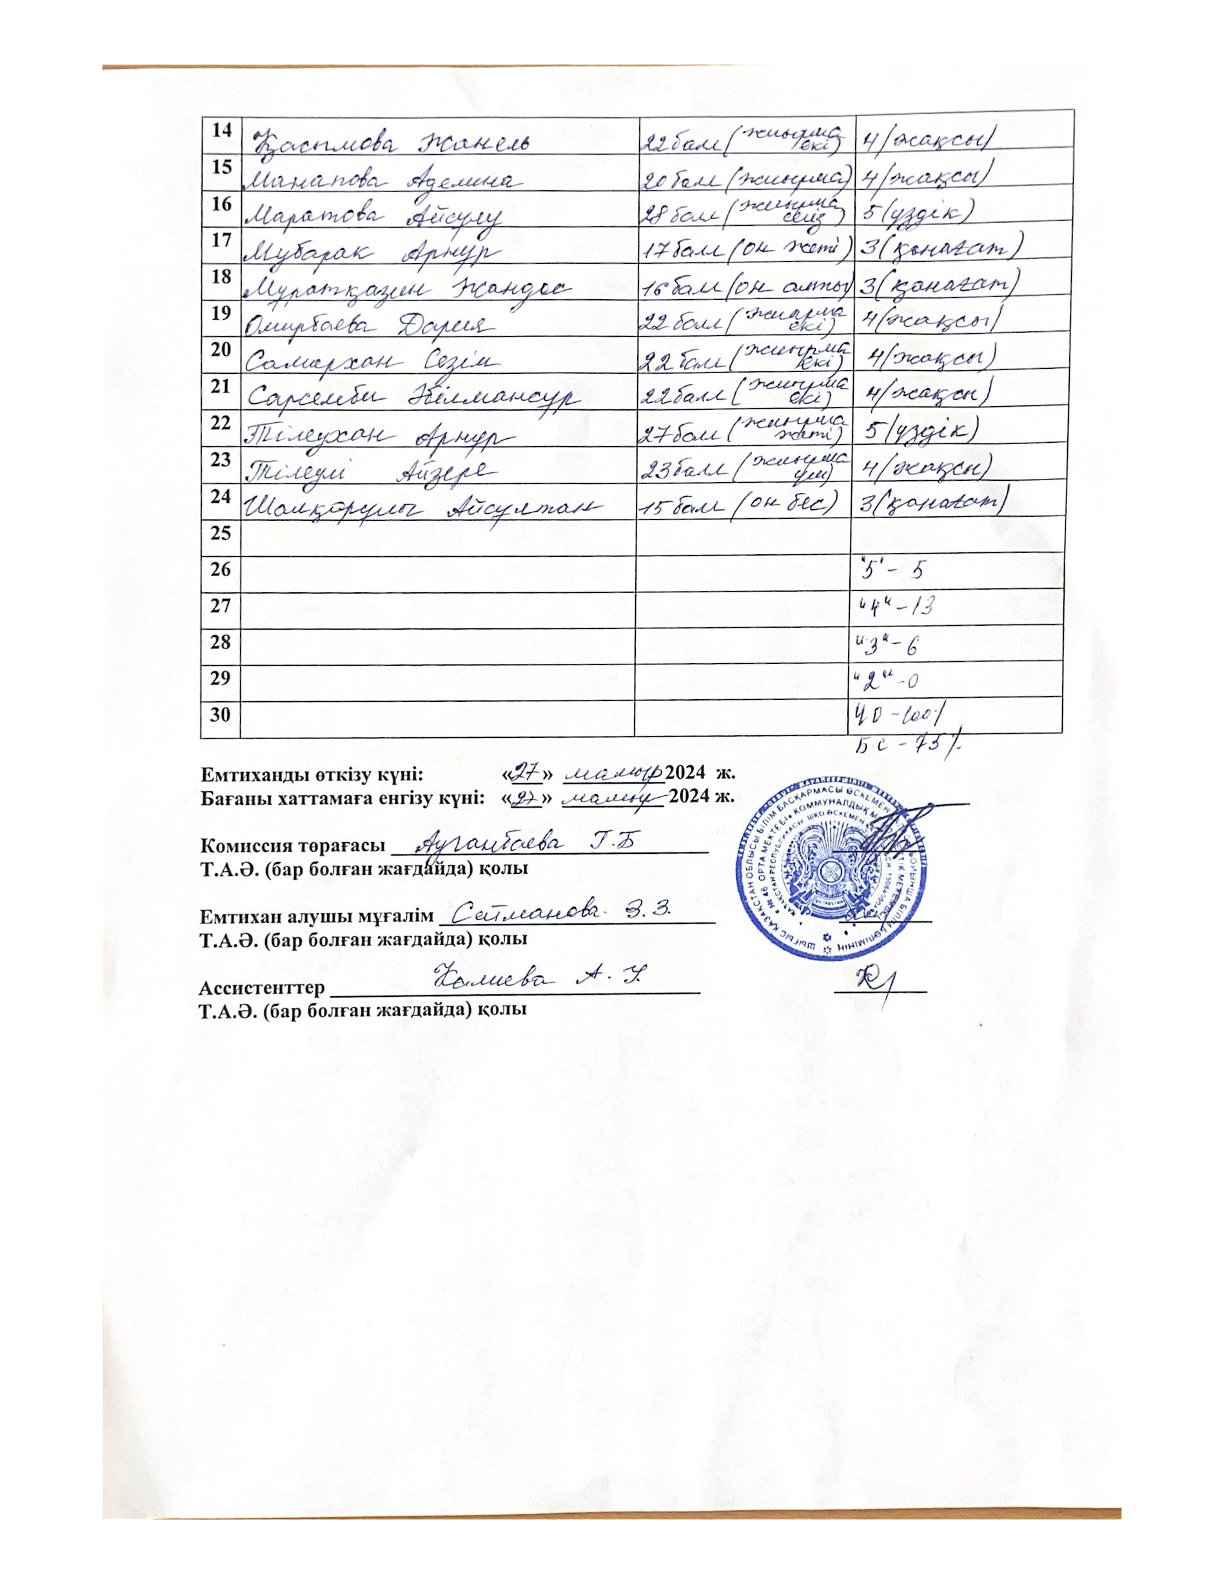 14 Қасымова Жанель 22 балл (жиырма екі) 4 (жақсы)
15 Манапова Аделина 20 балл (жиырма) 4 (жақсы)
16 Маратова Айсулу 28 балл (жиырма сегіз) 5 (үздік)
17 Мубарак Арнур 17 балл (он жеті) 3 (қанағат)
18 Муратқазин Жандос 16 балл (он алты) 3 (қанағат)
19 Омирбаева Дария 22 балл (жиырма екі) 4 (жақсы)
20 Самархан Сезім 22 балл (жиырма екі) 4 (жақсы)
21 Сарсемби 22 балл (жиырма екі) 4 (жақсы)
22 Тілеухан Арнур 27 балл (жиырма жеті) 5 (үздік)
23 Тілеулі Айзере 23 балл (жиырма үш) 4 (жақсы)
24 Шалқарұлы Айсултан 15 балл (он бес) 3 (қанағат)
25
26 "5" - 5
27 "4" - 13
28 "3" - 6
29 "2" - 0
30 ҮО - 100%
БС - 75%
Емтиханды өткізу күні: «27» мамыр 2024 ж.
Бағаны хаттамаға енгізу күні: «27» мамыр 2024 ж.
Комиссия төрағасы Ауганбаева Г.Б
Т.А.Ә. (бар болған жағдайда) қолы
Емтихан алушы мұғалім Сейтманова З.З.
Т.А.Ә. (бар болған жағдайда) қолы
Ассистенттер Калиева А.
Т.А.Ә. (бар болған жағдайда) қолы